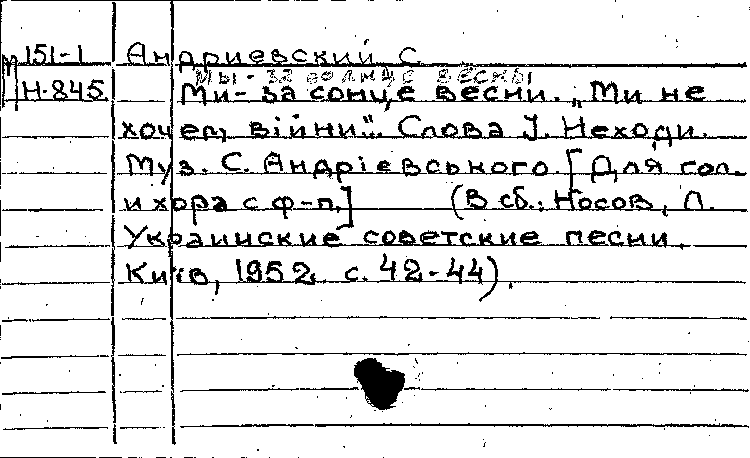 м 151-1 Андриевский С.
Н-845. Мы - за солнце весны
Ми - за сонце весни. „Ми не
хочем війни“. Слова І. Неходи.
Муз. С. Андрієвського. [Для гол.
и хора с ф-п.] (В сб.: Носов, Л.
Украинские советские песни.
Київ, 1952, с. 42-44).